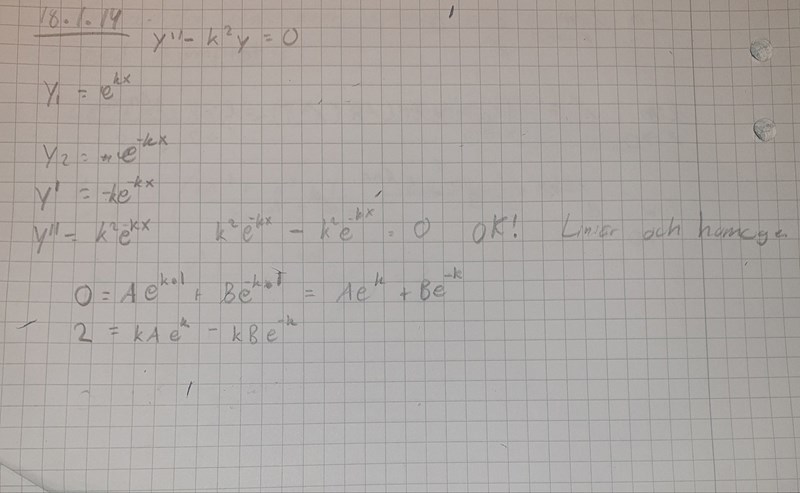 18.1.14
y'' - k²y = 0
y₁ = e^kx
y₂ = e^-kx
y' = -ke^-kx
y'' = k²e^-kx   k²e^-kx - k²e^-kx = 0   OK!   Liniär och homoge
0 = Ae^k·1 + Be^-k·1 = Ae^k + Be^-k
2 = kAe^k - kBe^-k